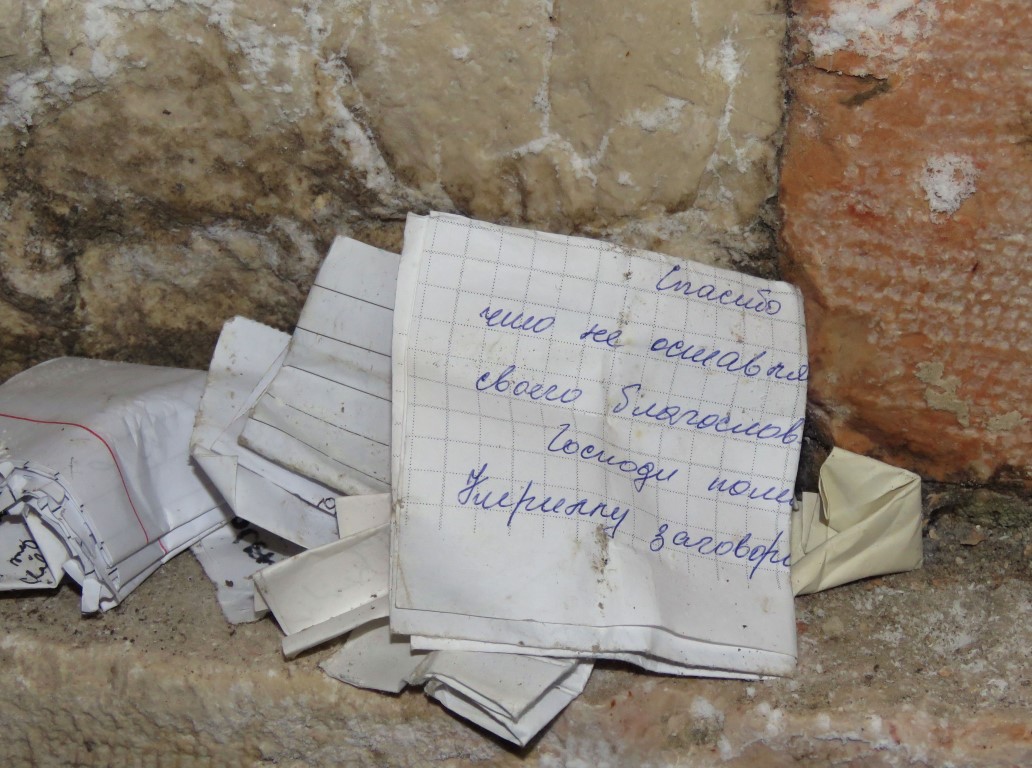 Спасибо
что не оставля
своего благослов
Господи помо
заговори
my